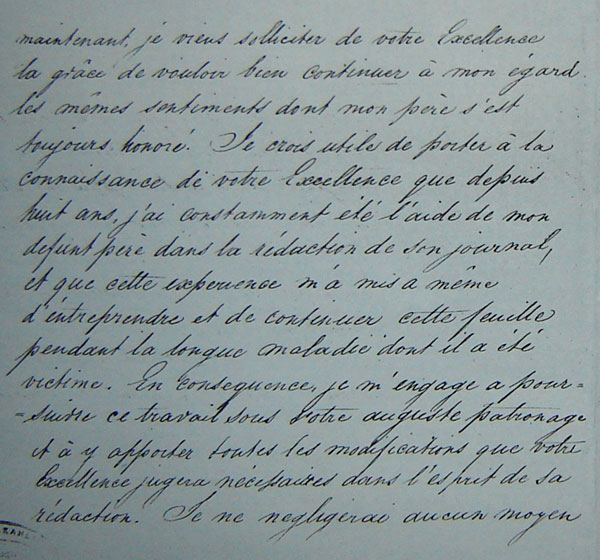 maintenant, je viens solliciter de votre Excellence
la grâce de vouloir bien continuer à mon égard
les mêmes sentiments dont mon père s'est
toujours honoré. Je crois utile de porter à la
connaissance de votre Excellence que depuis
huit ans, j'ai constamment été l'aide de mon
defunt père dans la rédaction de son journal,
et que cette experience m'a mis a même
d'entreprendre et de continuer cette feuille
pendant la longue maladie dont il a été
victime. En consequence, je m'engage a pour=
=suivre ce travail sous votre auguste patronage
et à y apporter toutes les modifications que votre
Excellence jugera nécessaires dans l'esprit de sa
rédaction. Je ne negligerai aucun moyen